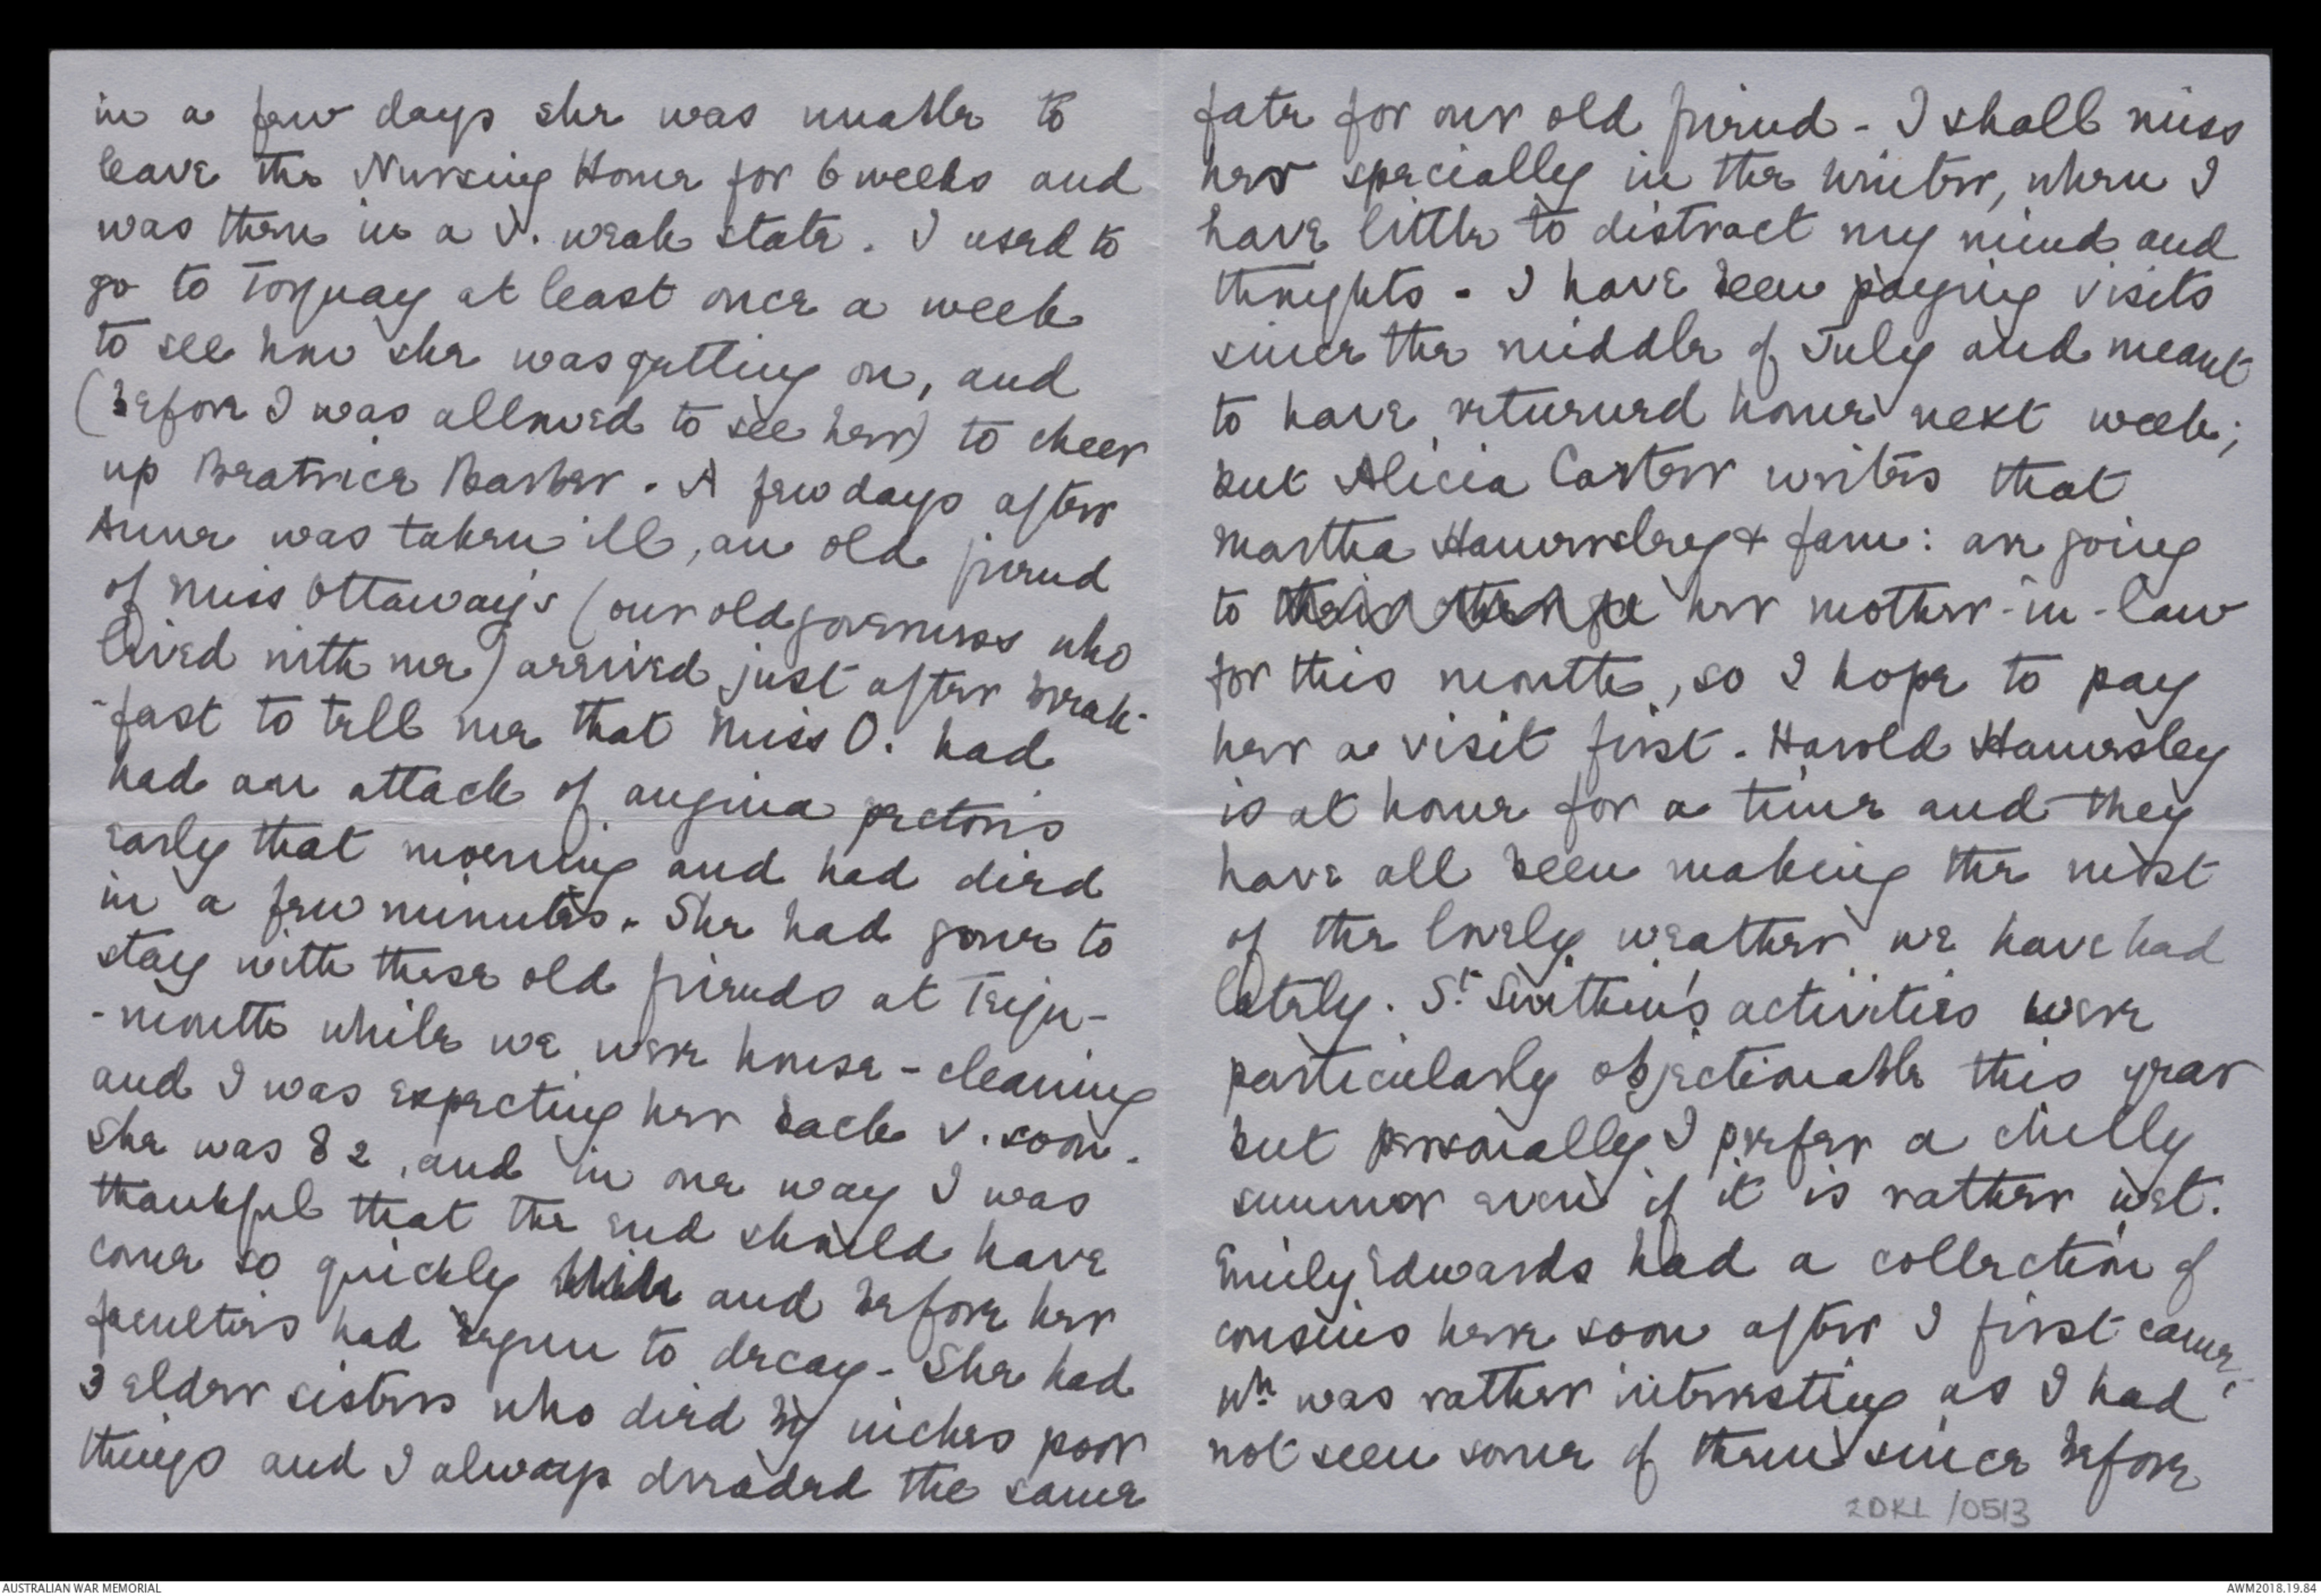 in a few days she was unable to
leave the Nursing Home for 6 weeks and
was then in a v. weak state. I used to
go to Torquay at least once a week
to see how she was getting on, and
(before I was allowed to see her) to cheer
up Beatrice Barber. A few days after
Anne was taken ill, an old friend
of Miss Ottaway's (our old governess who
lived with me) arrived just after break-
-fast to tell me that Miss O. had
had an attack of angina pectoris
early that morning and had died
in a few minutes. She had gone to
stay with these old friends at Teign-
-mouth while we were house-cleaning
and I was expecting her back v. soon.
She was 82, and in one way I was
thankful that the end should have
come so quickly and before her
faculties had begun to decay - She had
3 elder sisters who died by inches poor
things and I always dreaded the same
fate for our old friend - I shall miss
her specially in the winter, when I
have little to distract my mind and
thoughts - I have been paying visits
since the middle of July and meant
to have returned home next week;
but Alicia Carter writes that
Martha Hamersley & fam: are going
to her mother-in-law
for this month, so I hope to pay
her a visit first. Harold Hamersley
is at home for a time and they
have all been making the most
of the lovely weather we have had
lately. St. Swithin's activities were
particularly objectionable this year
but personally I prefer a chilly
summer even if it is rather wet.
Emily Edwards had a collection of
cousins here soon after I first came;
wh. was rather interesting as I had
not seen some of them since before
2DRL/0513
AUSTRALIAN WAR MEMORIAL
AWM2018.19.84